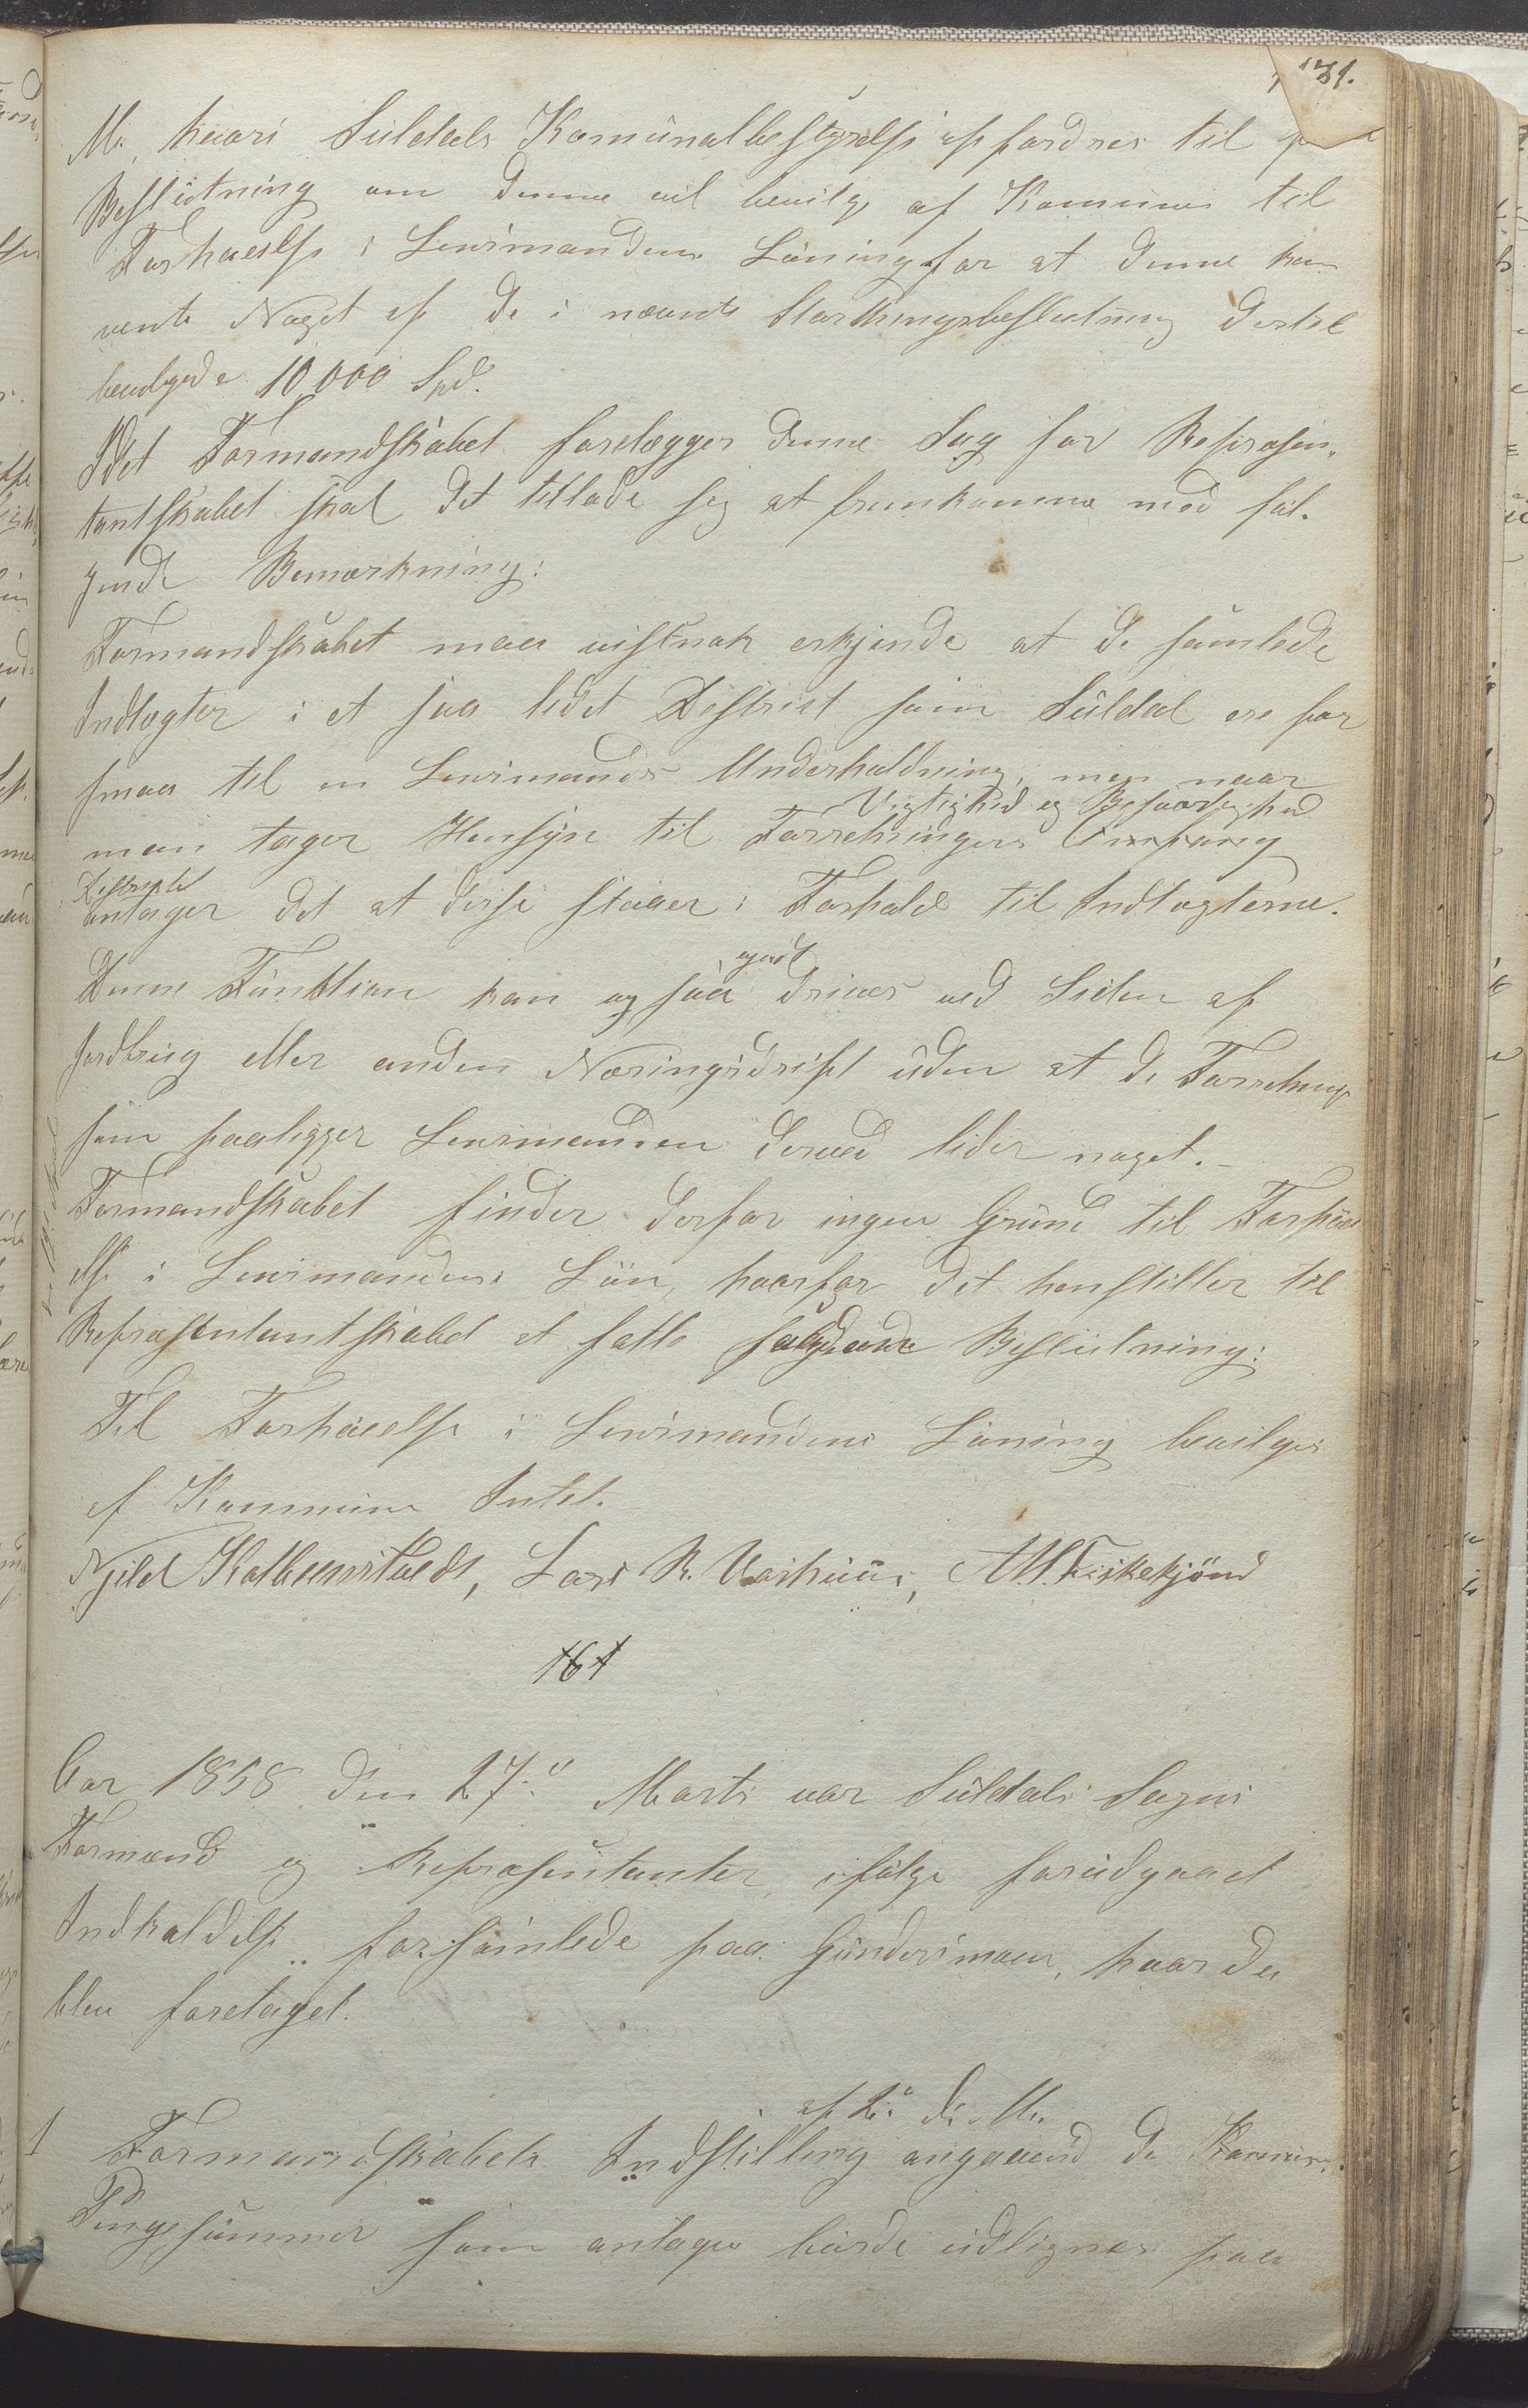 181.
M., hvori Suldals Komunalbestyrelse opfordres til
Beslutning om denne vil bevilge af Komunen til
Forhøielse i Lensmandens Løning for at denne kan
vente Noget af de i nævnte Storthingsbeslutning dertil
bevilgede 10,000 Spd.
Idet Formandskabet forelægger denne Sag for Repræsen-
tantskabet skal det tillade sig at fremkomme med føl-
gende Bemærkning:
Formandskabet maa vistnok erkjende at de samlede
Indtægter i et saa lidet District som Suldal ere for
smaa til en Lensmands Underholdning, men naar
Vigtighed og Besværlighed
man tager Hensyn til Forretningens Omfang
Distriktet
antager det at disse staaer i Forhold til Indtægterne.
godt
Denne Funktion kan og saa drives ved Siden af
Jordbrug eller anden Næringsdrift uden at de Forretninger
som paaligger Lensmanden derved lider noget. -
Formandskabet finder derfor ingen Grund til Forhøi-
else i Lensmandens Løn, hvorfor det henstiller til
Repræsentantskabet at fatte følgende Beslutning:
Til Forhøielse i Lensmandens Løning bevilges
af Kommunen Intet.
Njeld Kolbeenstvedt, Lars R. Vaihuus, A. H. Fiskekjönd
161
Aar 1858 den 27de Marts var Suldals Sogns
Formænd og Repræsentanter, ifølge forudgaaet
Indkaldelse forsamlede paa Gundersmoen, hvor da
blev foretaget.
af 2. d. M.
1 Formandskabets Indstilling angaaend de Kommune-
Pengesummer som antages burde udlignes paa